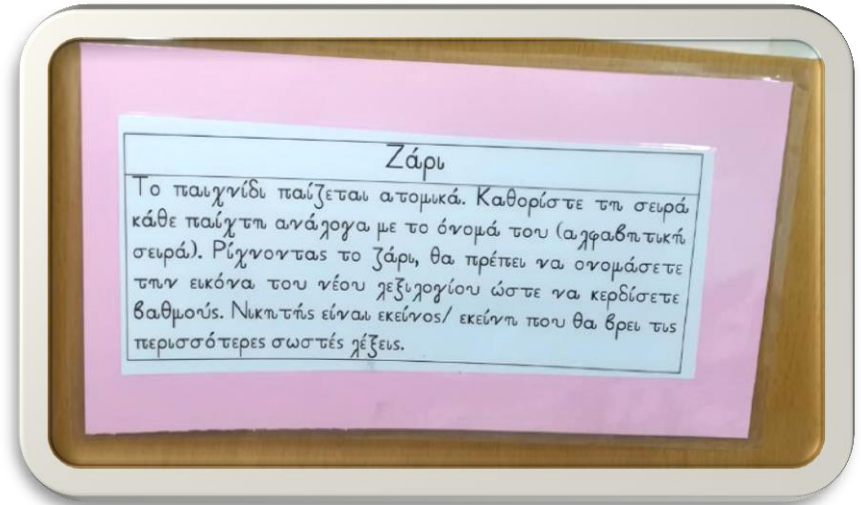 Ζάρι
Το παιχνίδι παίζεται ατομικά. Καθορίστε τη σειρά
κάθε παίχτη ανάλογα με το όνομά του (αλφαβητική
σειρά). Ρίχνοντας το ζάρι, θα πρέπει να ονομάσετε
την εικόνα του νέου λεξιλογίου ώστε να κερδίσετε
βαθμούς. Νικητής είναι εκείνος/ εκείνη που θα βρει τις
περισσότερες σωστές λέξεις.